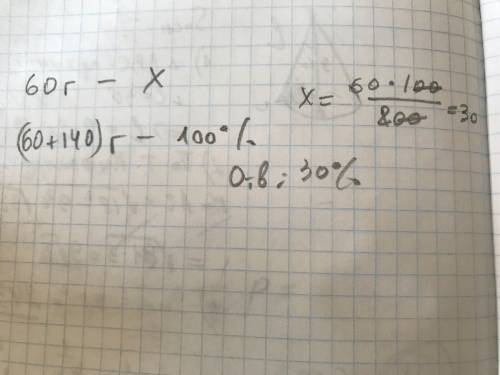 60г - X
(60+140)г - 100%
X = 60·100/200 = 30
О-в: 30%